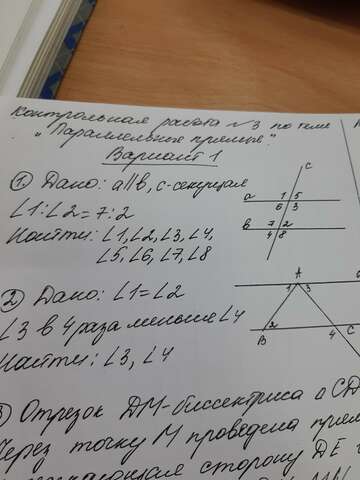 Контрольная работа №3 по теме
"Параллельные прямые".
Вариант 1
1. Дано: a||b, c-секущая
∠1:∠2=7:2
Найти: ∠1,∠2,∠3,∠4,
∠5,∠6,∠7,∠8
c
a 1 5
6 3
b 7 2
4 8
2. Дано: ∠1=∠2
∠3 в 4 раза меньше ∠4
Найти: ∠3, ∠4
A
1 3
2 4
B C
3 Отрезок DM-биссектриса △CD
Через точку M проведена
сторону DE